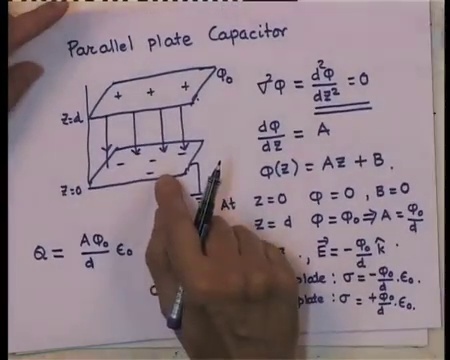 Parallel plate Capacitor
+ + +
Φ₀
z=d
z=0
∇²Φ = d²Φ/dz² = 0
dΦ/dz = A
Φ(z) = Az + B.
At z=0 Φ=0, B=0
z=d Φ=Φ₀ ⟹ A = Φ₀/d
, E⃗ = -Φ₀/d k̂
plate : σ = -Φ₀/d . ε₀
plate : σ = +Φ₀/d . ε₀
Q = AΦ₀/d ε₀